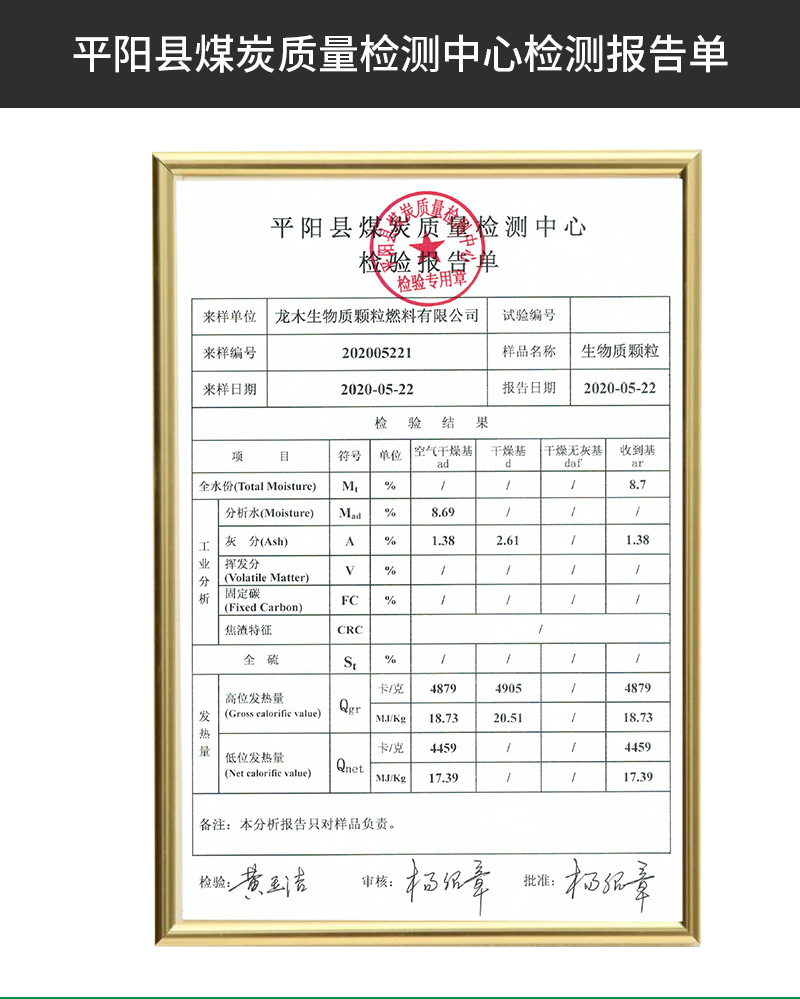 平阳县煤炭质量检测中心检测报告单
平阳县煤炭质量检测中心
检验报告单
平阳县煤炭质量检测中心
检验专用章
来样单位 龙木生物质颗粒燃料有限公司 试验编号
来样编号 202005221 样品名称 生物质颗粒
来样日期 2020-05-22 报告日期 2020-05-22
检 验 结 果
项 目 符号 单位 空气干燥基 ad 干燥基 d 干燥无灰基 daf 收到基 ar
全水份(Total Moisture) Mt % / / / 8.7
工业分析
分析水(Moisture) Mad % 8.69 / / /
灰 分(Ash) A % 1.38 2.61 / 1.38
挥发分
(Volatile Matter) V % / / / /
固定碳
(Fixed Carbon) FC % / / / /
焦渣特征 CRC /
全 硫 St % / / / /
发热量
高位发热量
(Gross calorific value) Qgr 卡/克 4879 4905 / 4879
MJ/Kg 18.73 20.51 / 18.73
低位发热量
(Net calorific value) Qnet 卡/克 4459 / / 4459
MJ/Kg 17.39 / / 17.39
备注：本分析报告只对样品负责。
检验: 审核: 批准: